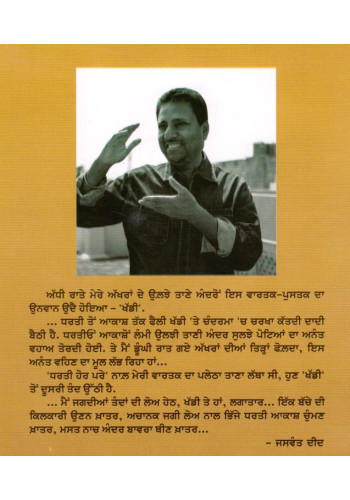 ਅੱਧੀ ਰਾਤੇ ਮੇਰੇ ਅੱਖਰਾਂ ਦੇ ਉਲਝੇ ਤਾਣੇ ਅੰਦਰੋਂ ਇਸ ਵਾਰਤਕ-ਪੁਸਤਕ ਦਾ
ਉਨਵਾਨ ਉਦੈ ਹੋਇਆ – 'ਖੱਡੀ'...
... ਧਰਤੀ ਤੋਂ ਆਕਾਸ਼ ਤੱਕ ਫੈਲੀ ਖੱਡੀ 'ਤੇ ਚੰਦਰਮਾ 'ਚ ਚਰਖਾ ਕੱਤਦੀ ਦਾਦੀ
ਬੈਠੀ ਹੈ. ਧਰਤੀਓਂ ਆਕਾਸ਼ੋਂ ਲੰਮੀ ਉਲਝੀ ਤਾਣੀ ਅੰਦਰ ਸੁਲਝੇ ਪੋਟਿਆਂ ਦਾ ਅਨੰਤ
ਵਹਾਅ ਤੋਰਦੀ ਹੋਈ. ਤੇ ਮੈਂ ਡੂੰਘੀ ਰਾਤ ਗਏ ਅੱਖਰਾਂ ਦੀਆਂ ਤਿੜ੍ਹਾਂ ਫੋਲਦਾ, ਇਸ
ਅਨੰਤ ਵਹਿਣ ਦਾ ਮੂਲ ਲੱਭ ਰਿਹਾ ਹਾਂ...
'ਧਰਤੀ ਹੋਰ ਪਰੇ' ਨਾਲ਼ ਮੇਰੀ ਵਾਰਤਕ ਦਾ ਪਲੇਠਾ ਤਾਣਾ ਲੱਥਾ ਸੀ, ਹੁਣ 'ਖੱਡੀ'
ਤੋਂ ਦੂਸਰੀ ਤੰਦ ਉੱਠੀ ਹੈ.
... ਮੈਂ ਜਗਦੀਆਂ ਤੰਦਾਂ ਦੀ ਲੋਅ ਹੇਠ, ਖੱਡੀ ਤੇ ਹਾਂ, ਲਗਾਤਾਰ... ਇੱਕ ਬੱਚੇ ਦੀ
ਕਿਲਕਾਰੀ ਉਣਨ ਖ਼ਾਤਰ, ਅਚਾਨਕ ਜਗੀ ਲੋਅ ਨਾਲ ਭਿੱਜੇ ਧਰਤੀ ਆਕਾਸ਼ ਚੁੰਮਣ
ਖ਼ਾਤਰ, ਮਸਤ ਨਾਚ ਅੰਦਰ ਬਾਵਰਾ ਥੀਣ ਖ਼ਾਤਰ...
– ਜਸਵੰਤ ਦੀਦ